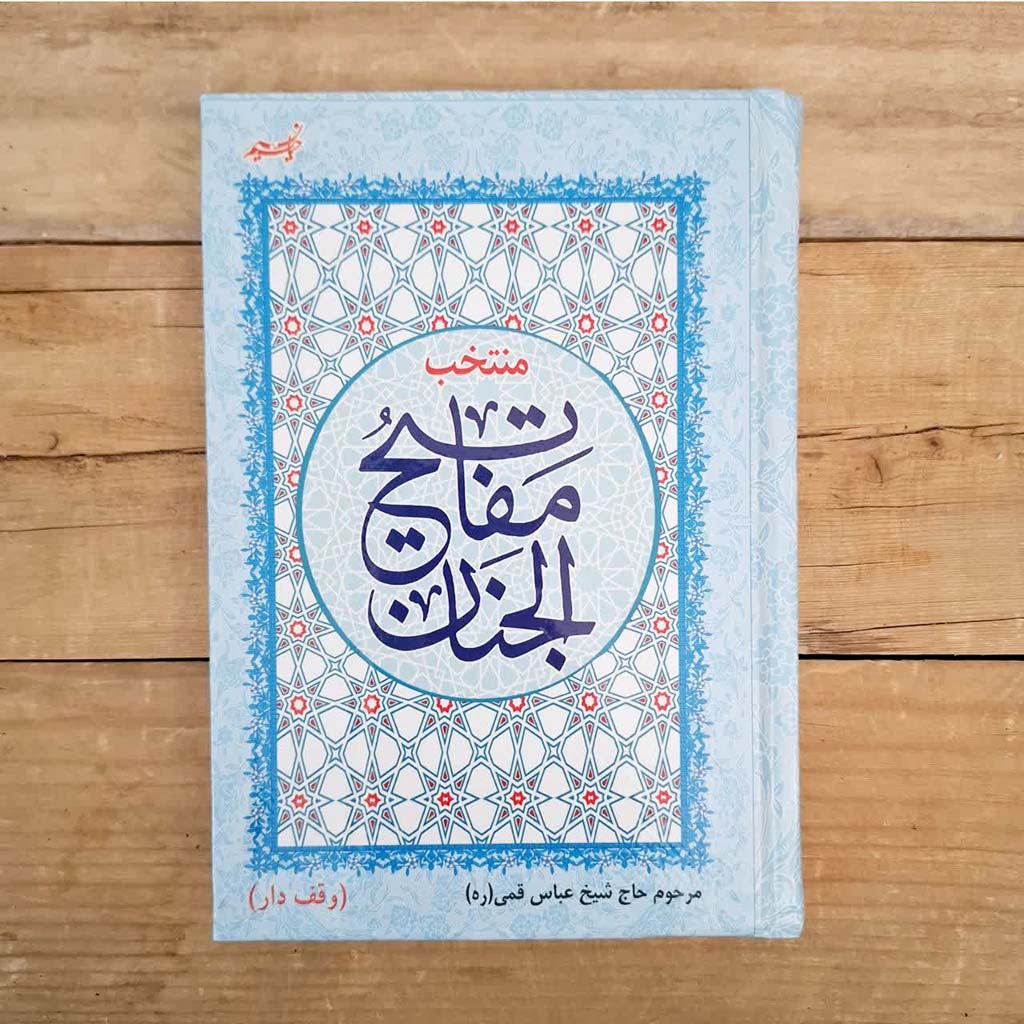 منتخب
مفاتیحُ
الجنان
مرحوم حاج شیخ عباس قمی(ره)
(وقف دار)